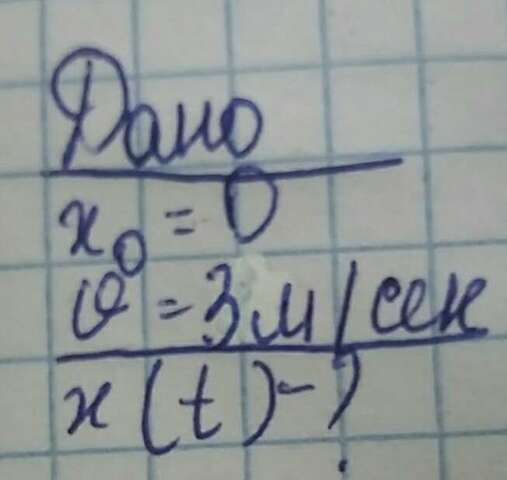 Дано
x₀ = 0
υ = 3 м/сек
x(t) - ?